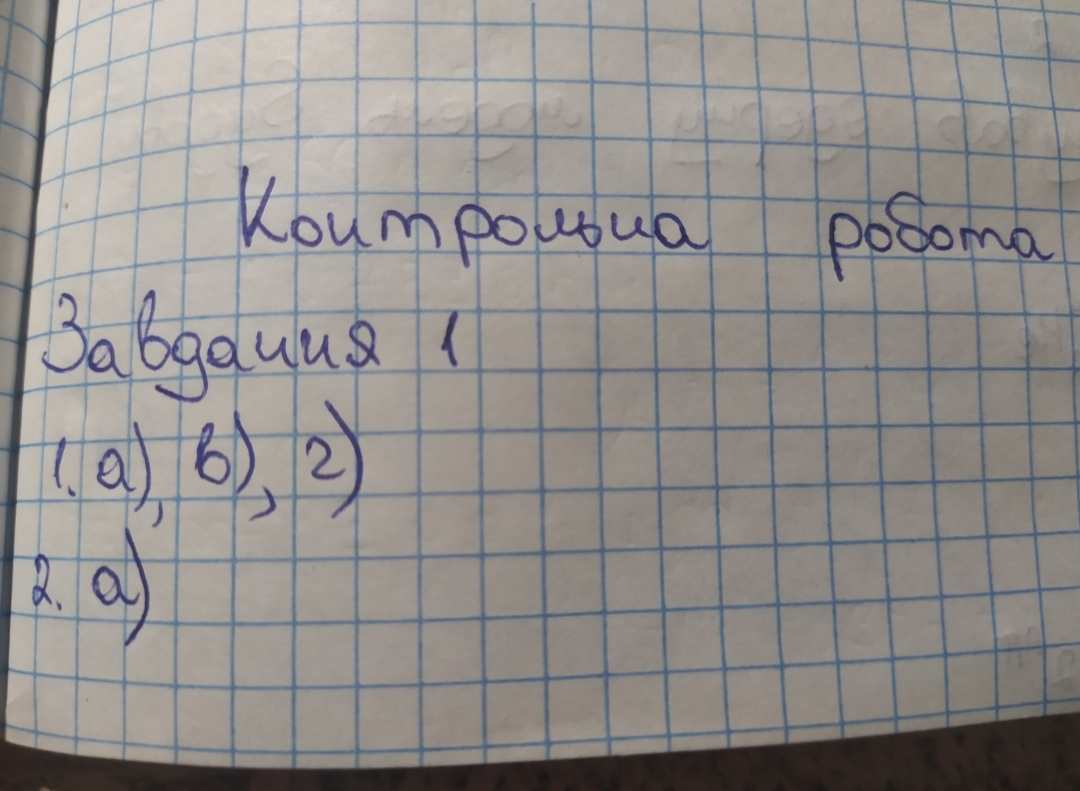 Контрольна робота
Завдання 1
1. а), в), г)
2. а)